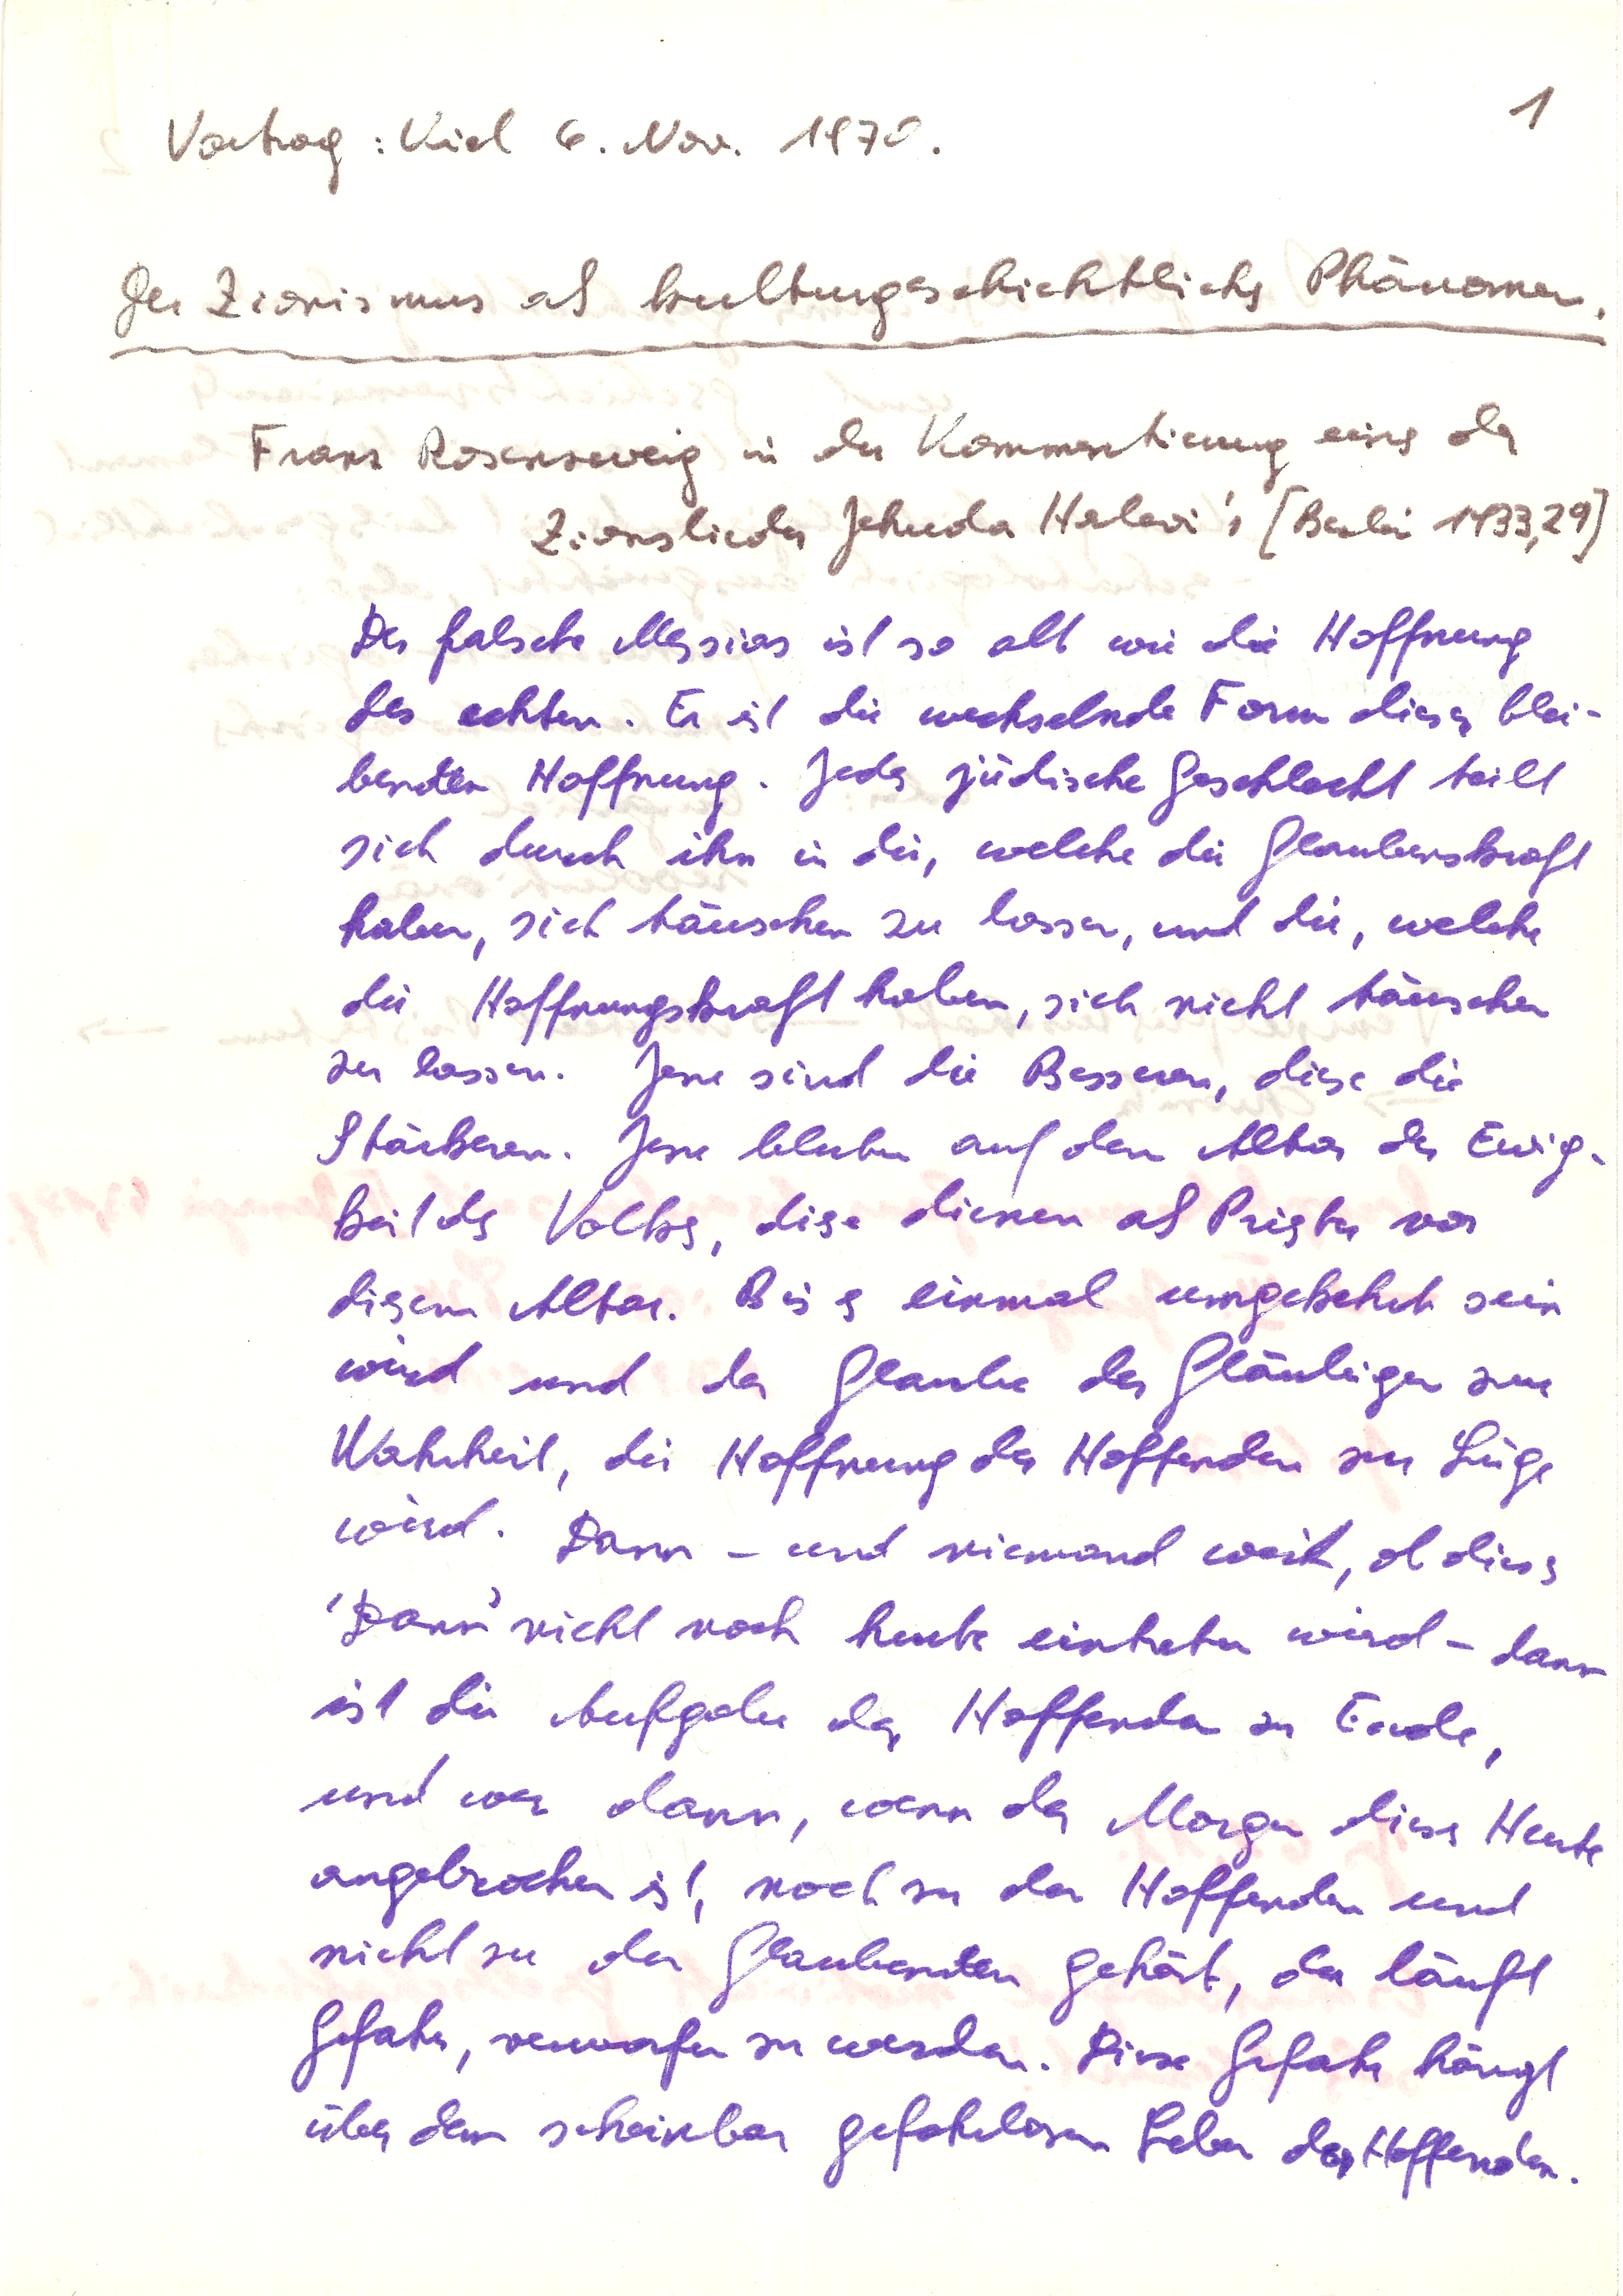 1
Vortrag: Kiel 6. Nov. 1970.
Der Zionismus als kulturgeschichtliches Phänomen.
Franz Rosenzweig in der Kommentierung eines der
Zionslieder Jehuda Halevi's [Berlin 1933,29]
Der falsche Messias ist so alt wie die Hoffnung
des echten. Er ist die wechselnde Form dieser blei-
benden Hoffnung. Jedes jüdische Geschlecht teilt
sich durch ihn in die, welche die Glaubenskraft
haben, sich täuschen zu lassen, und die, welche
die Hoffnungskraft haben, sich nicht täuschen
zu lassen. Jene sind die Besseren, diese die
Stärkeren. Jene bluten auf dem Altar der Ewig-
keit des Volkes, diese dienen als Priester vor
diesem Altar. Bis es einmal umgekehrt sein
wird und der Glaube der Gläubigen zur
Wahrheit, die Hoffnung der Hoffenden zur Lüge
wird. Dann – und niemand weiß, ob dieses
'Dann' nicht noch heute eintreten wird – dann
ist die Aufgabe der Hoffenden zu Ende,
und wer dann, wenn der Morgen dieses Heute
angebrochen ist, noch zu den Hoffenden und
nicht zu den Glaubenden gehört, der läuft
Gefahr, verworfen zu werden. Diese Gefahr hängt
über dem scheinbar gefahrlosen Leben der Hoffenden.